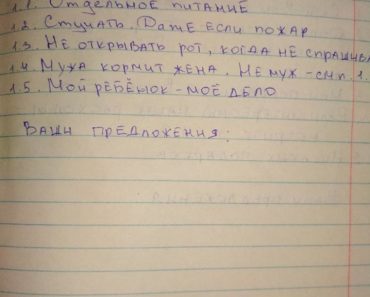 1.1. Отдельное питание
1.2. Стучать. Даже если пожар
1.3. Не открывать рот, когда не спрашива
1.4. Мужа кормит жена. Не муж - см п. 1.
1.5. Мой ребёнок - моё дело
Ваши предложения: